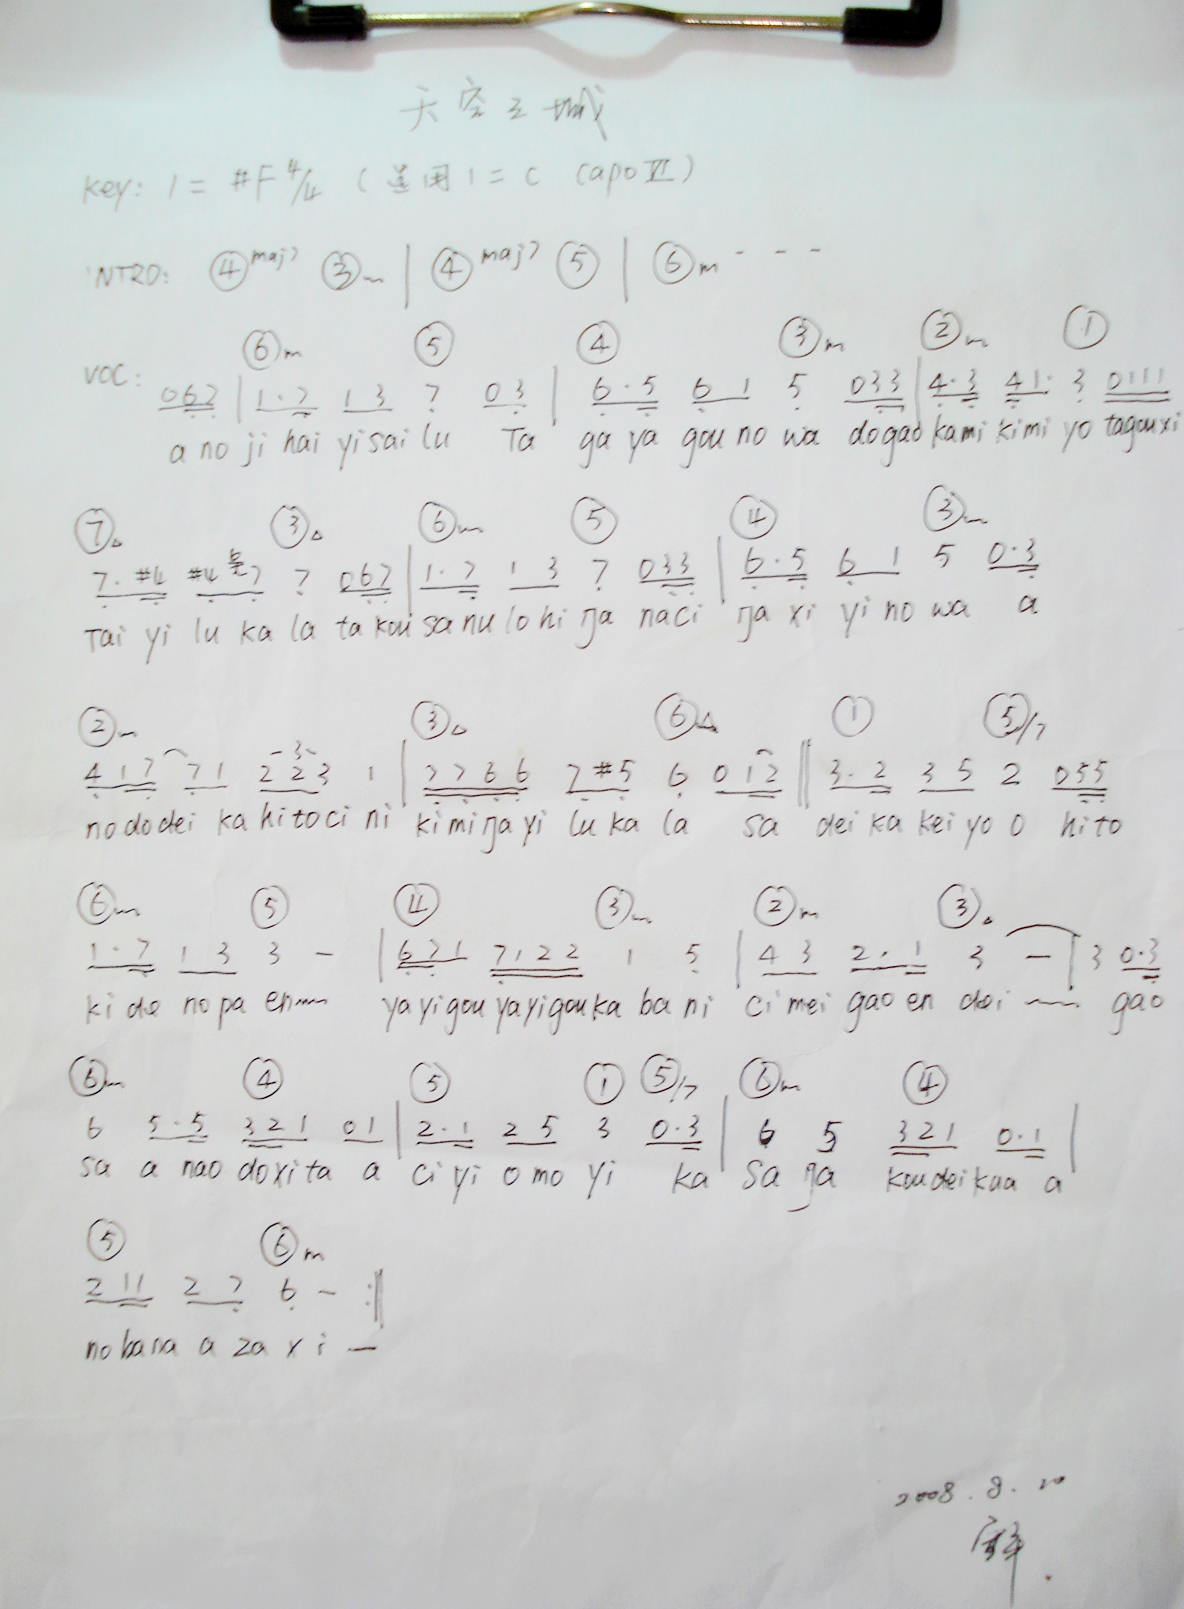 天空之城
Key: 1 = #F 4/4 (选用 1 = C Capo VI)
INTRO: ④maj7 ③m | ④maj7 ⑤ | ⑥m - - -
⑥m ⑤ ④ ③m ②m ①
VOC: 067 | 1·7 13 7 03 | 6·5 61 5 033 | 4·3 41· 3 0111
a no ji hai yi sai lu Ta ga ya gou no wa do gao ka mi ki mi yo tagouxi
⑦△ ③△ ⑥m ⑤ ④ ③m
7·#4 #4 7 7 067 | 1·7 13 7 033 | 6·5 61 5 0·3
Tai yi lu ka la ta kou sa nu lo hi ŋa na ci ŋa xi yi no wa a
②m ③△ ⑥△ ① ⑤/7
417 71 223 1 | 7766 7#5 6 012 || 3·2 35 2 055
no do dei ka hi to ci ni ki mi ŋa yi lu ka la sa dei ka kei yo o hi to
⑥m ⑤ ④ ③m ②m ③△
1·7 13 3 - | 671 7122 1 5 | 43 2·1 3 - | 3 0·3
ki de no pa en ya yi gou ya yi gou ka ba ni ci mei gao en dei gao
⑥m ④ ⑤ ① ⑤/7 ⑥m ④
6 5·5 321 01 | 2·1 25 3 0·3 | 6 5 321 0·1 |
sa a nao do xi ta a ci yi o mo yi ka sa ŋa kou dei kua a
⑤ ⑥m
211 27 6 - :||
no bana a za xi —
2008.8.20